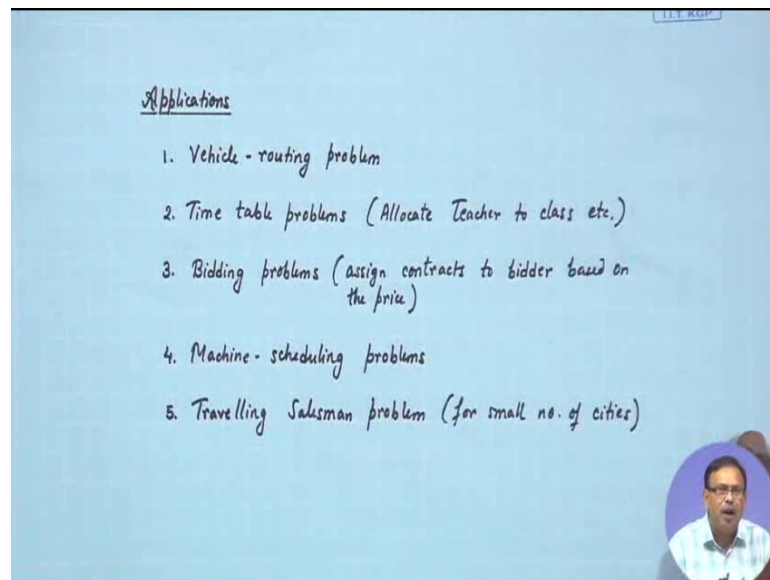 I.I.T. KGP
Applications
1. Vehicle - routing problem
2. Time table problems (Allocate Teacher to class etc.)
3. Bidding problems (assign contracts to bidder based on
the price)
4. Machine - scheduling problems
5. Travelling Salesman problem (for small no. of cities)